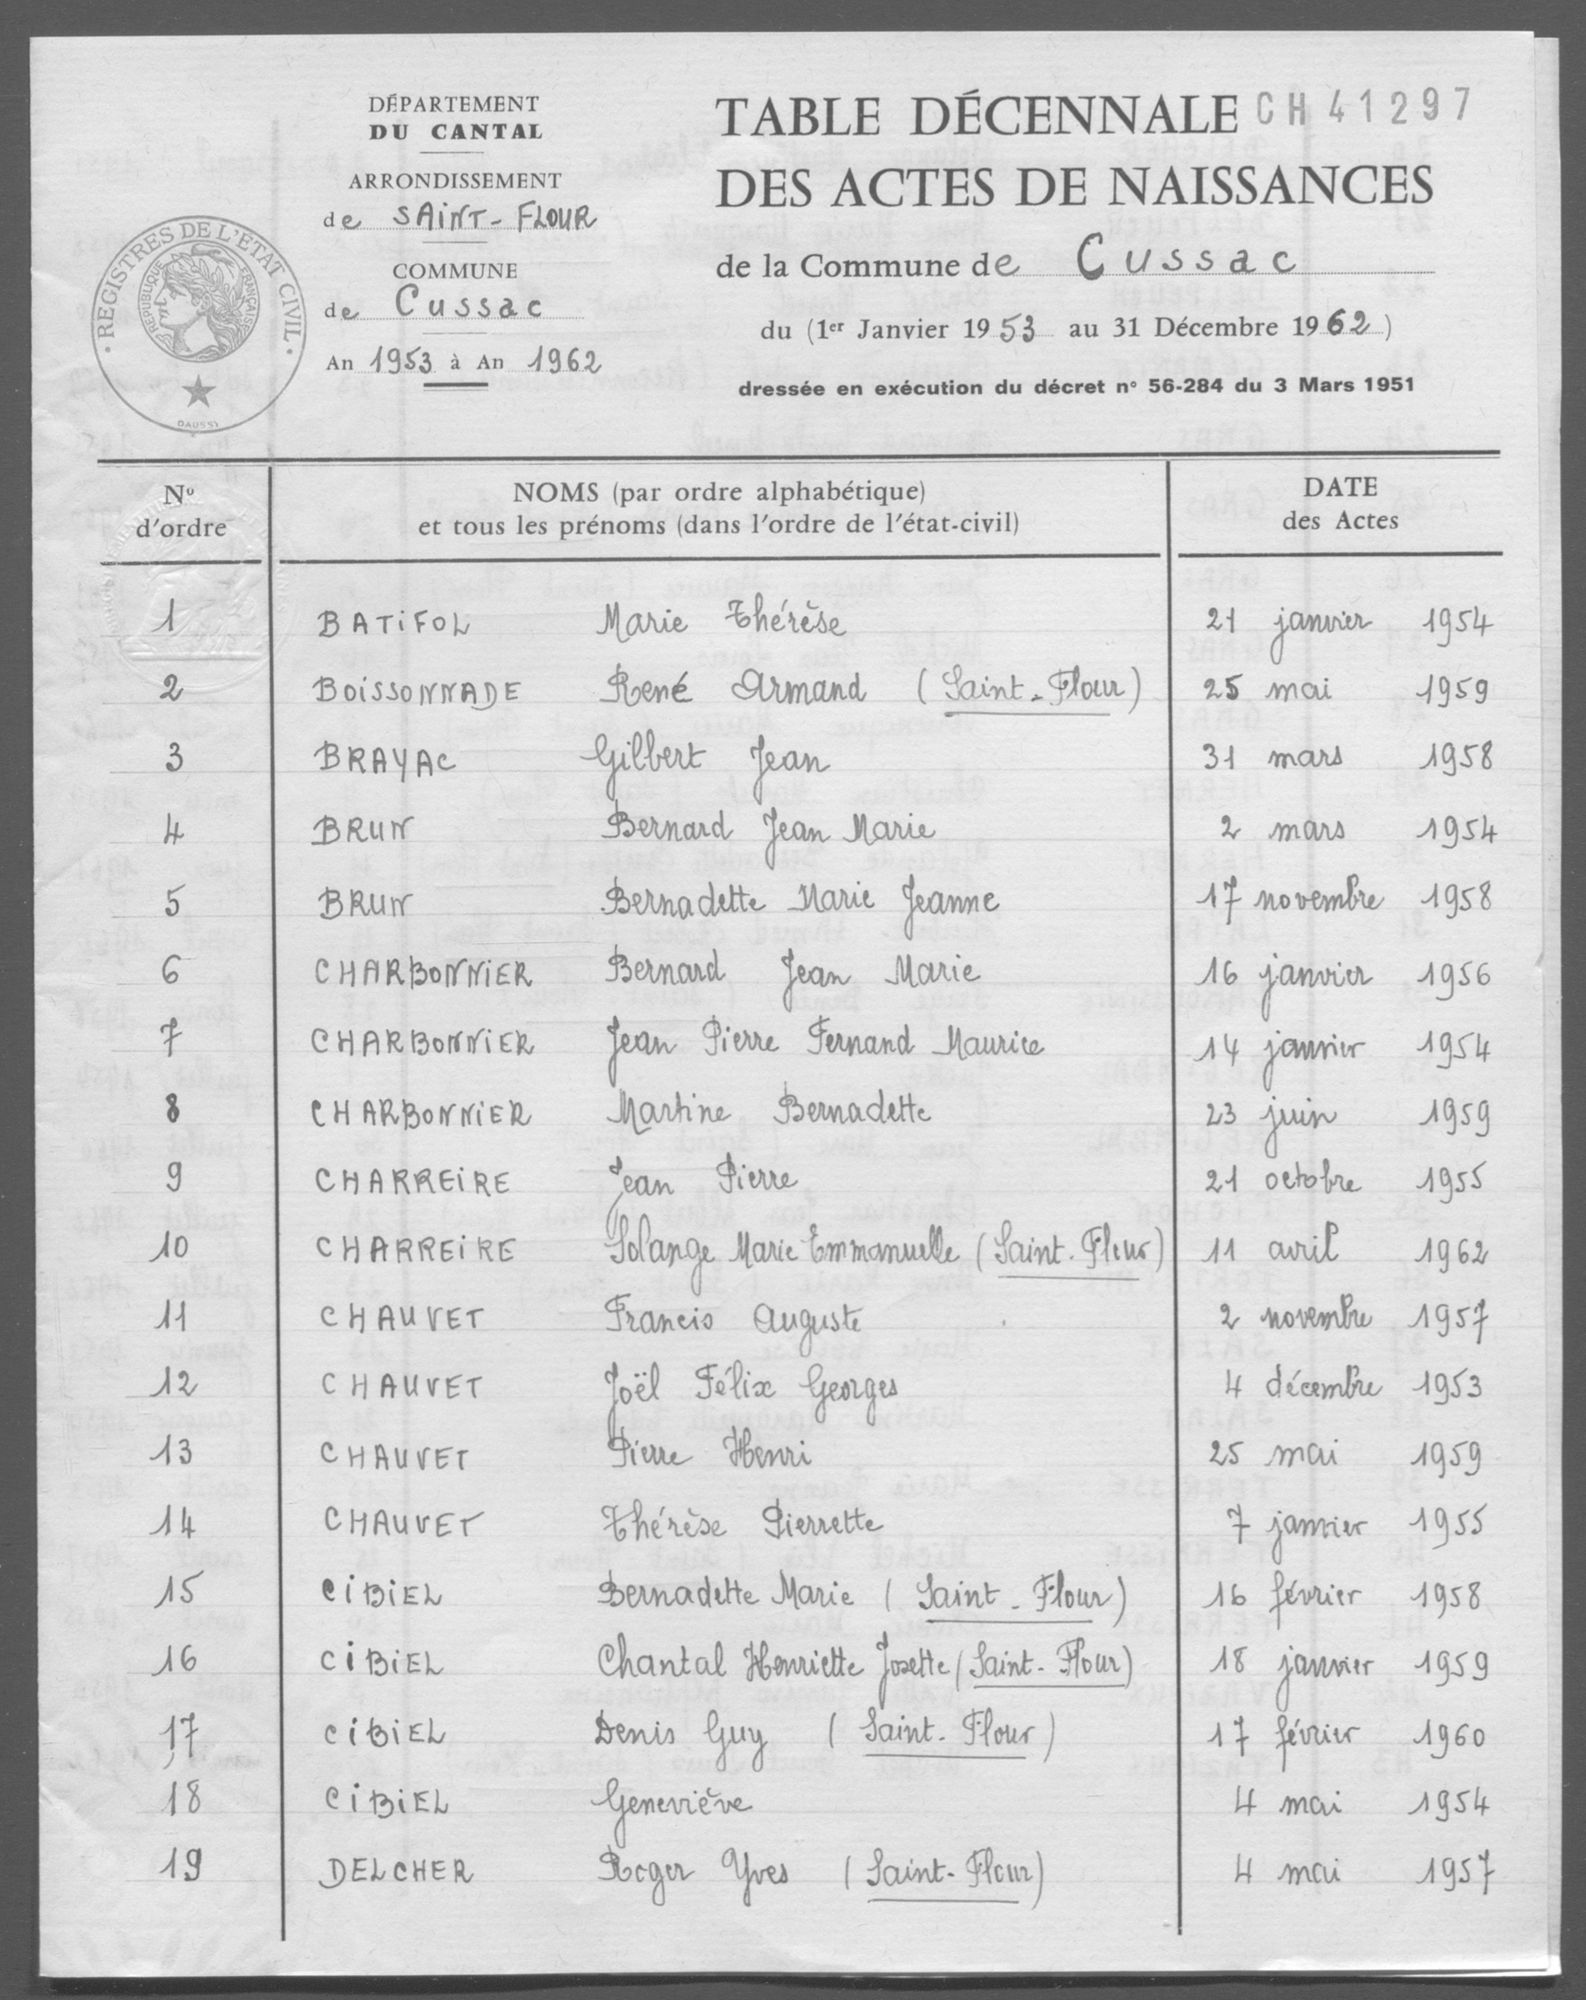 DÉPARTEMENT
DU CANTAL
ARRONDISSEMENT
de SAINT-FLOUR
COMMUNE
de Cussac
An 1953 à An 1962
REGISTRES DE L'ETAT CIVIL
REPUBLIQUE FRANÇAISE
DAUSSY
TABLE DÉCENNALE CH 41297
DES ACTES DE NAISSANCES
de la Commune de Cussac
du (1er Janvier 1953 au 31 Décembre 1962)
dressée en exécution du décret n° 56-284 du 3 Mars 1951
N° d'ordre
NOMS (par ordre alphabétique)
et tous les prénoms (dans l'ordre de l'état-civil)
DATE
des Actes
1 BATIFOL Marie Thérèse 21 janvier 1954
2 BOISSONNADE René Armand (Saint-Flour) 25 mai 1959
3 BRAYAC Gilbert Jean 31 mars 1958
4 BRUN Bernard Jean Marie 2 mars 1954
5 BRUN Bernadette Marie Jeanne 17 novembre 1958
6 CHARBONNIER Bernard Jean Marie 16 janvier 1956
7 CHARBONNIER Jean Pierre Fernand Maurice 14 janvier 1954
8 CHARBONNIER Martine Bernadette 23 juin 1959
9 CHARREIRE Jean Pierre 21 octobre 1955
10 CHARREIRE Solange Marie Emmanuelle (Saint-Flour) 11 avril 1962
11 CHAUVET Francis Auguste 2 novembre 1957
12 CHAUVET Joël Félix Georges 4 décembre 1953
13 CHAUVET Pierre Henri 25 mai 1959
14 CHAUVET Thérèse Pierrette 7 janvier 1955
15 CIBIEL Bernadette Marie (Saint-Flour) 16 février 1958
16 CIBIEL Chantal Henriette Josette (Saint-Flour) 18 janvier 1959
17 CIBIEL Denis Guy (Saint-Flour) 17 février 1960
18 CIBIEL Geneviève 4 mai 1954
19 DELCHER Roger Yves (Saint-Flour) 4 mai 1957